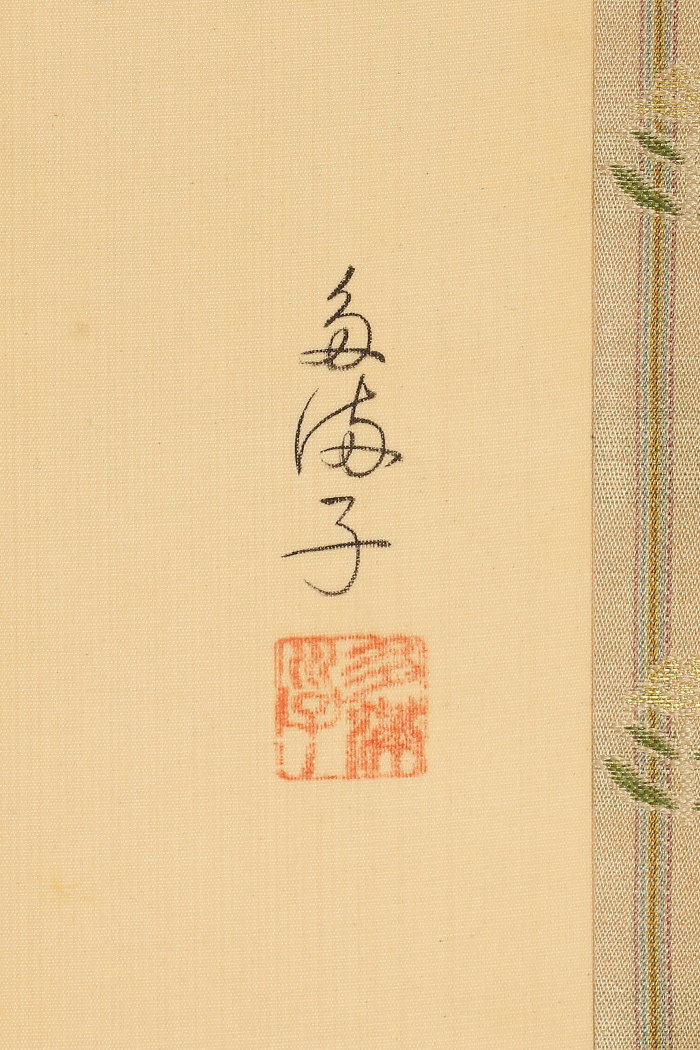 多満子